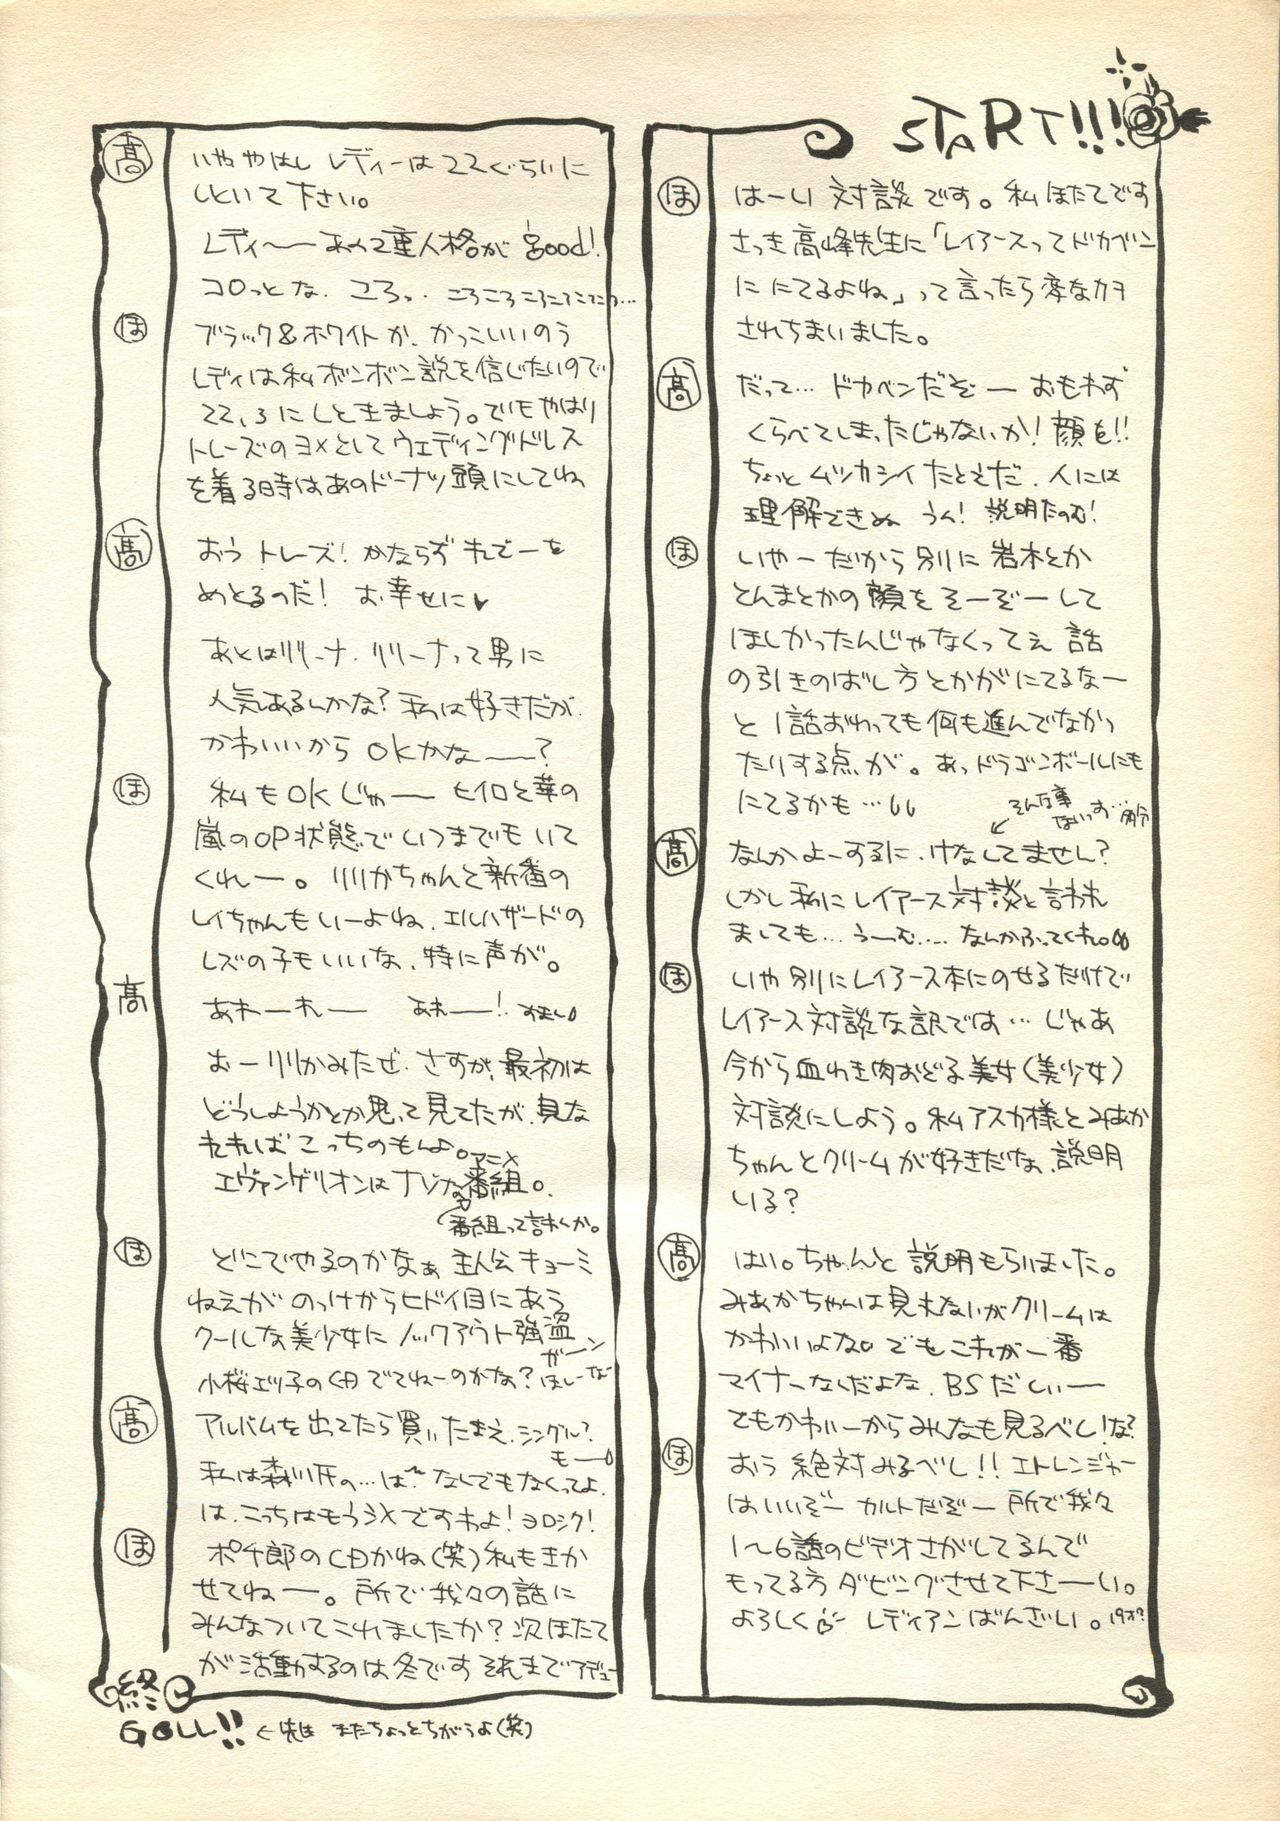 START!!!
ほ
はーい 対談です。私ほたてです
さっき高峰先生に「レイアースってドカベン
ににてるよね」って言ったら変なカオ
されちまいました。
高
だって… ドカベンだぞー おもわず
くらべてしまったじゃないか！顔を!!
ちょっとムツカシイたとえだ、人には
理解できぬ うん！ 説明たのむ！
ほ
いやーだから別に岩木とか
とんまとかの顔をそーぞーして
ほしかったんじゃなくってぇ 話
の引きのばし方とかがにてるなー
と1話おわっても何も進んでなかっ
たりする点が。あっドラゴンボールにも
にてるかも…
そんな事
ないっす…
高
なんかよーするに、けなしてません？
しかし私にレイアース対談と言われ
ましても… うーむ…… なんかふってくれ。
ほ
いや別にレイアース本にのせるだけで
レイアース対談な訳では… じゃあ
今から血わき肉おどる美女(美少女)
対談にしよう。私アスカ様とみあか
ちゃんとクリームが好きだな、説明
いる？
高
はい。ちゃんと説明もらいました。
みあかちゃんは見えないがクリームは
かわいいよな。でもこれが一番
マイナーなんだよな、BSだしぃー
でもかわいーからみんなも見るべし！な？
ほ
おう 絶対みるべし!! エトレンジャー
はいいぞー カルトだぞー 所で我々
1～6話のビデオさがしてるんで
もってる方ダビングさせて下さーい。
よろしく レディアンばんざい。19才?
高
いややはし レディーは22ぐらいに
しといて下さい。
レディ～ あの2重人格が good!
コロっとな、ころっ、ころころころころ…
ほ
ブラック&ホワイトか、かっこいいのう
レディは私ボンボン説を信じたいので
22、3にしときましょう。でもやはり
トレーズのヨメとしてウェディングドレス
を着る時はあのドーナツ頭にしてね
高
おう トレーズ！かならずれでーを
めとるのだ！ お幸せに♥
あとはリリーナ、リリーナって男に
人気あるんかな？私は好きだが、
かわいいからOKかな――？
ほ
私もOKじゃー ヒイロと華の
嵐のOP状態でいつまでもいて
くれー。リリカちゃんと新番の
レイちゃんもいーよね、エルハザードの
レズの子もいいな、特に声が。
高
あれーれー あれー！
おーリリかみたぜ、さすが、最初は
どうしようかとか思って見てたが、見な
れればこっちのもんよ。
エヴァンゲリオンはナゾな番組。
アニメ
番組って言わんか。
ほ
どこでやるのかなぁ 主人公キョーミ
ねえが のっけからヒドイ目にあう
クールな美少女にノックアウト強盗
ガーン
小桜エツ子のCDでてねーのかな？ほしーな
高
アルバムを出てたら買いたまえ、シングル？
もー
私は森川氏の…は なんでもなくってよ、
は、こっちはもうシメですわよ！ヨロシク！
ほ
ポチ郎のCDかね(笑)私もきか
せてねー。所で我々の話に
みんなついてこれましたか？次ほたて
が活動するのは冬です それまでアデュー
終
GOLL!! ←先は まだちょっとちがうよ(笑)